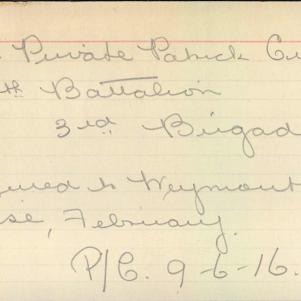 Private Patrick
th Battalion
3rd Brigad
to Weymout
February.
P/C. 9-6-16.